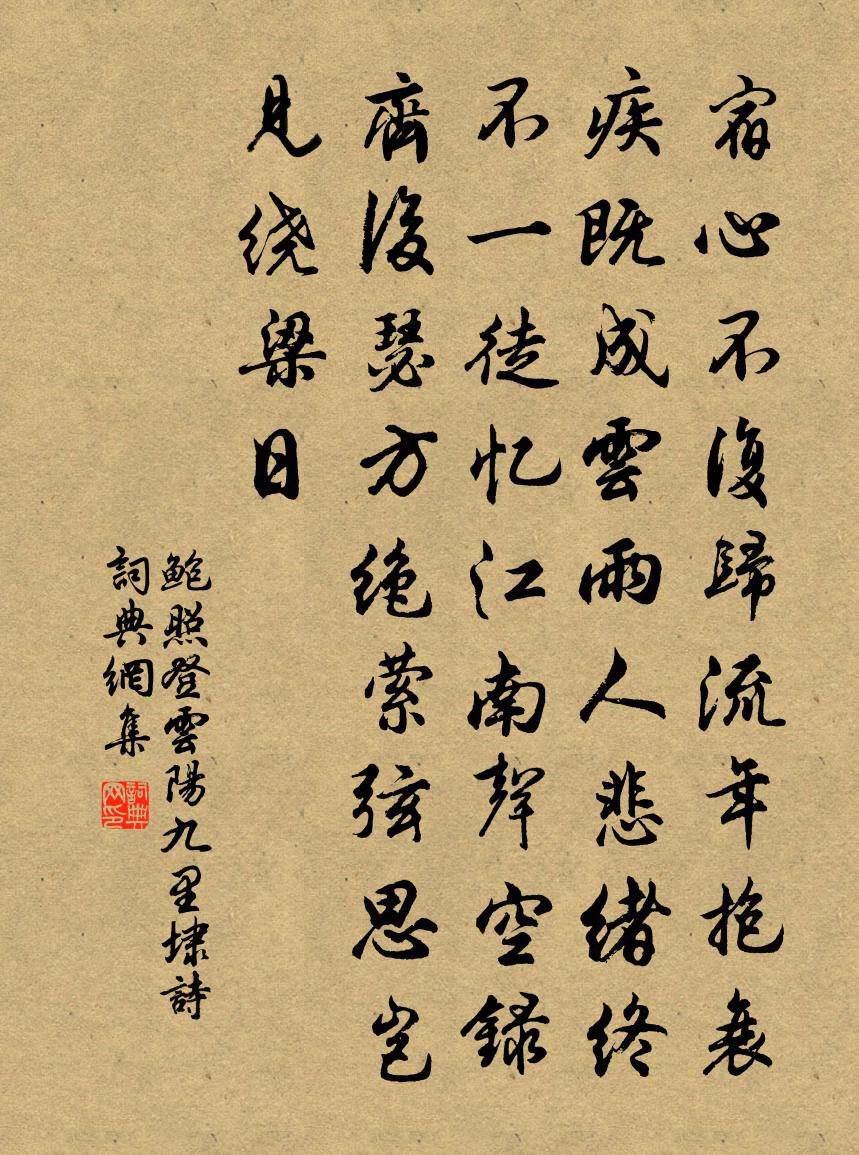 宿心不復歸流年抱衰
疾既成雲雨人悲緒終
不一徒忆江南聲空録
齊後瑟方绝萦弦思岂
見绕梁日
鮑照登雲陽九里埭詩
詞典網集
詞典网印